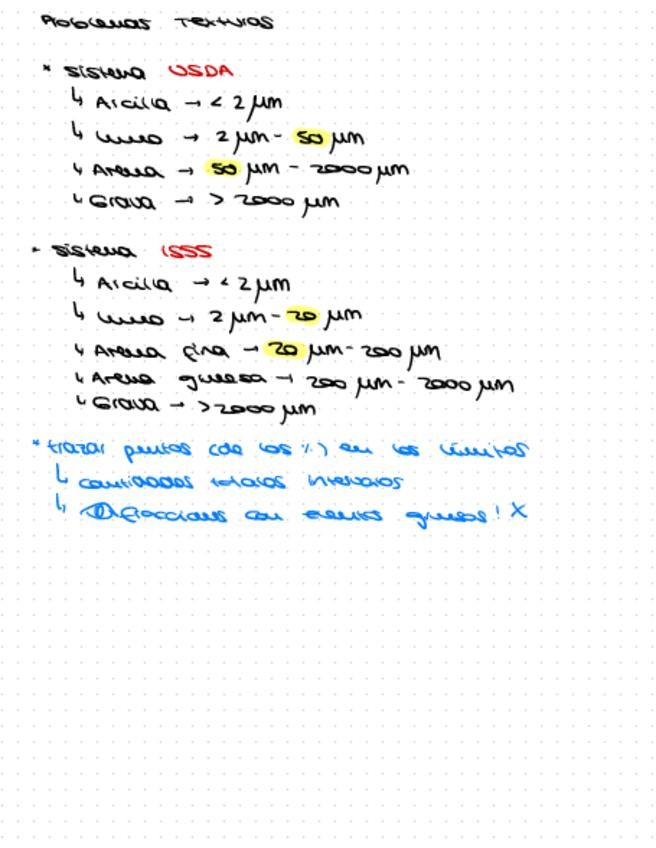 Problemas Texturas
* sistema USDA
↳ Arcilla → < 2 μm
↳ Limo → 2 μm - 50 μm
↳ Arena → 50 μm - 2000 μm
↳ Grava → > 2000 μm
* sistema ISSS
↳ Arcilla → < 2 μm
↳ Limo → 2 μm - 20 μm
↳ Arena fina → 20 μm - 200 μm
↳ Arena gruesa → 200 μm - 2000 μm
↳ Grava → > 2000 μm
* trazar puntos (de los %) en los límites
↳ cantidades totales intervalos
↳ fracciones con elementos gruesos! X